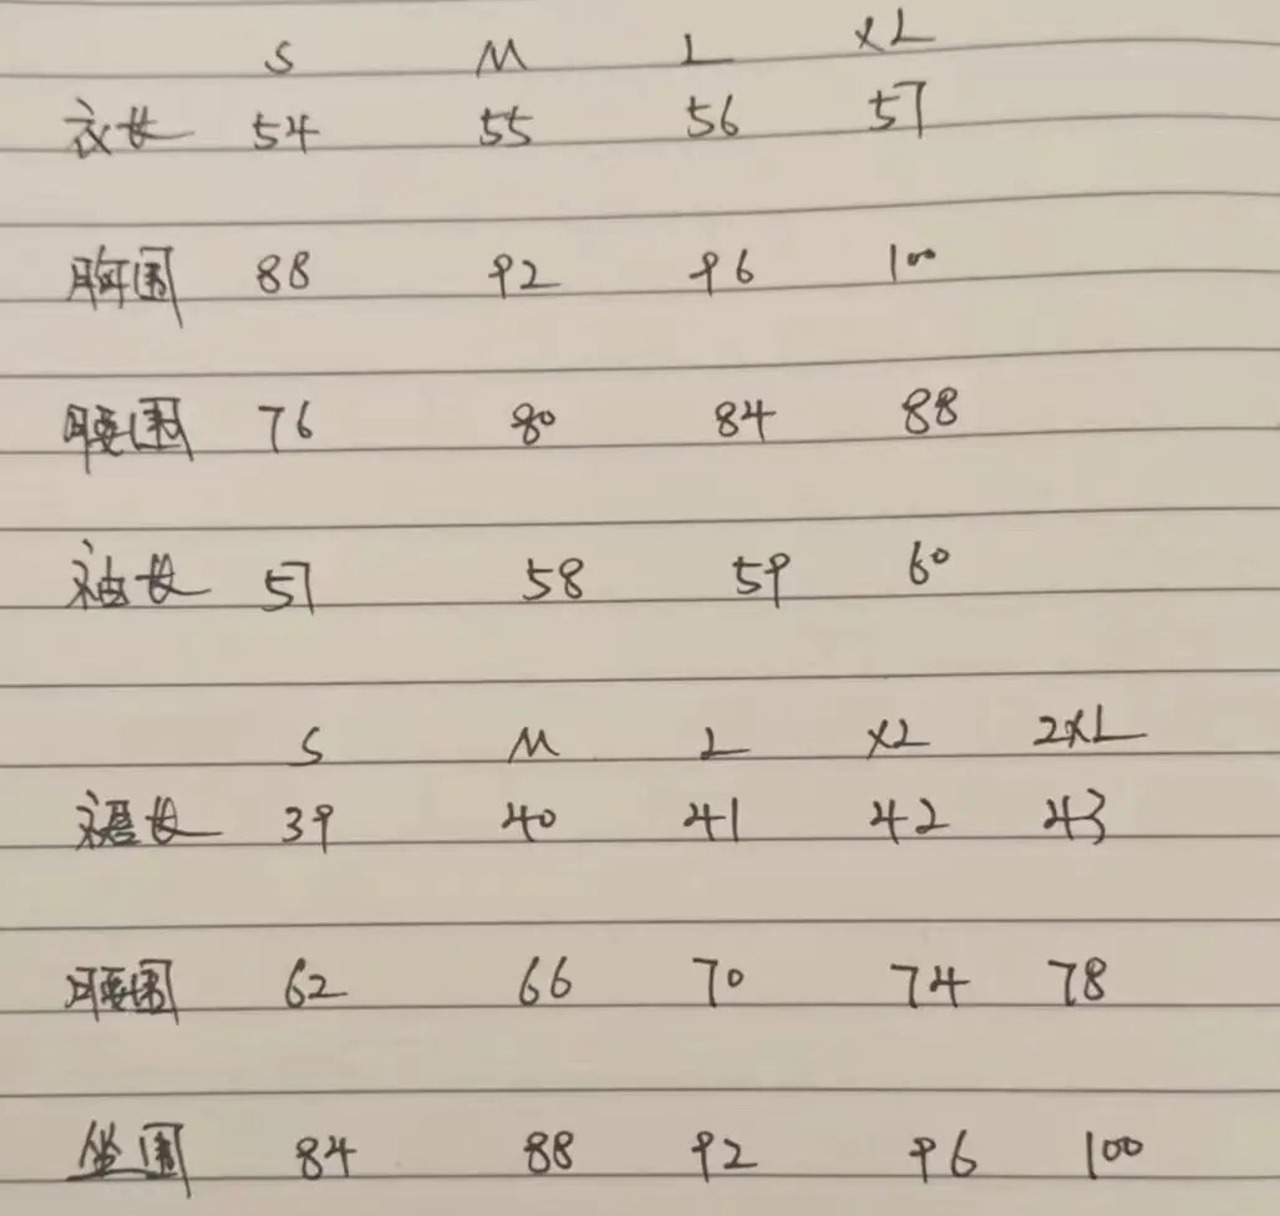 S M L XL
衣长 54 55 56 57
胸围 88 92 96 100
腰围 76 80 84 88
袖长 57 58 59 60
S M L XL 2XL
裙长 39 40 41 42 43
腰围 62 66 70 74 78
坐围 84 88 92 96 100